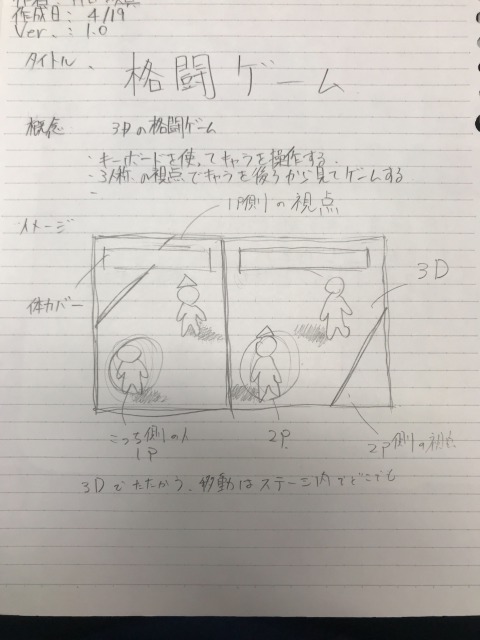 作成日: 4/19
Ver.: 1.0
タイトル.
格闘ゲーム
概念 3Dの格闘ゲーム
・キーボードを使ってキャラを操作する.
・3人称の視点でキャラを後ろから見てゲームする
・
1P側の視点
イメージ
3D
体力バー
こっち側の人
1P
2P.
2P側の視点
3Dでたたかう. 移動はステージ内でどこでも